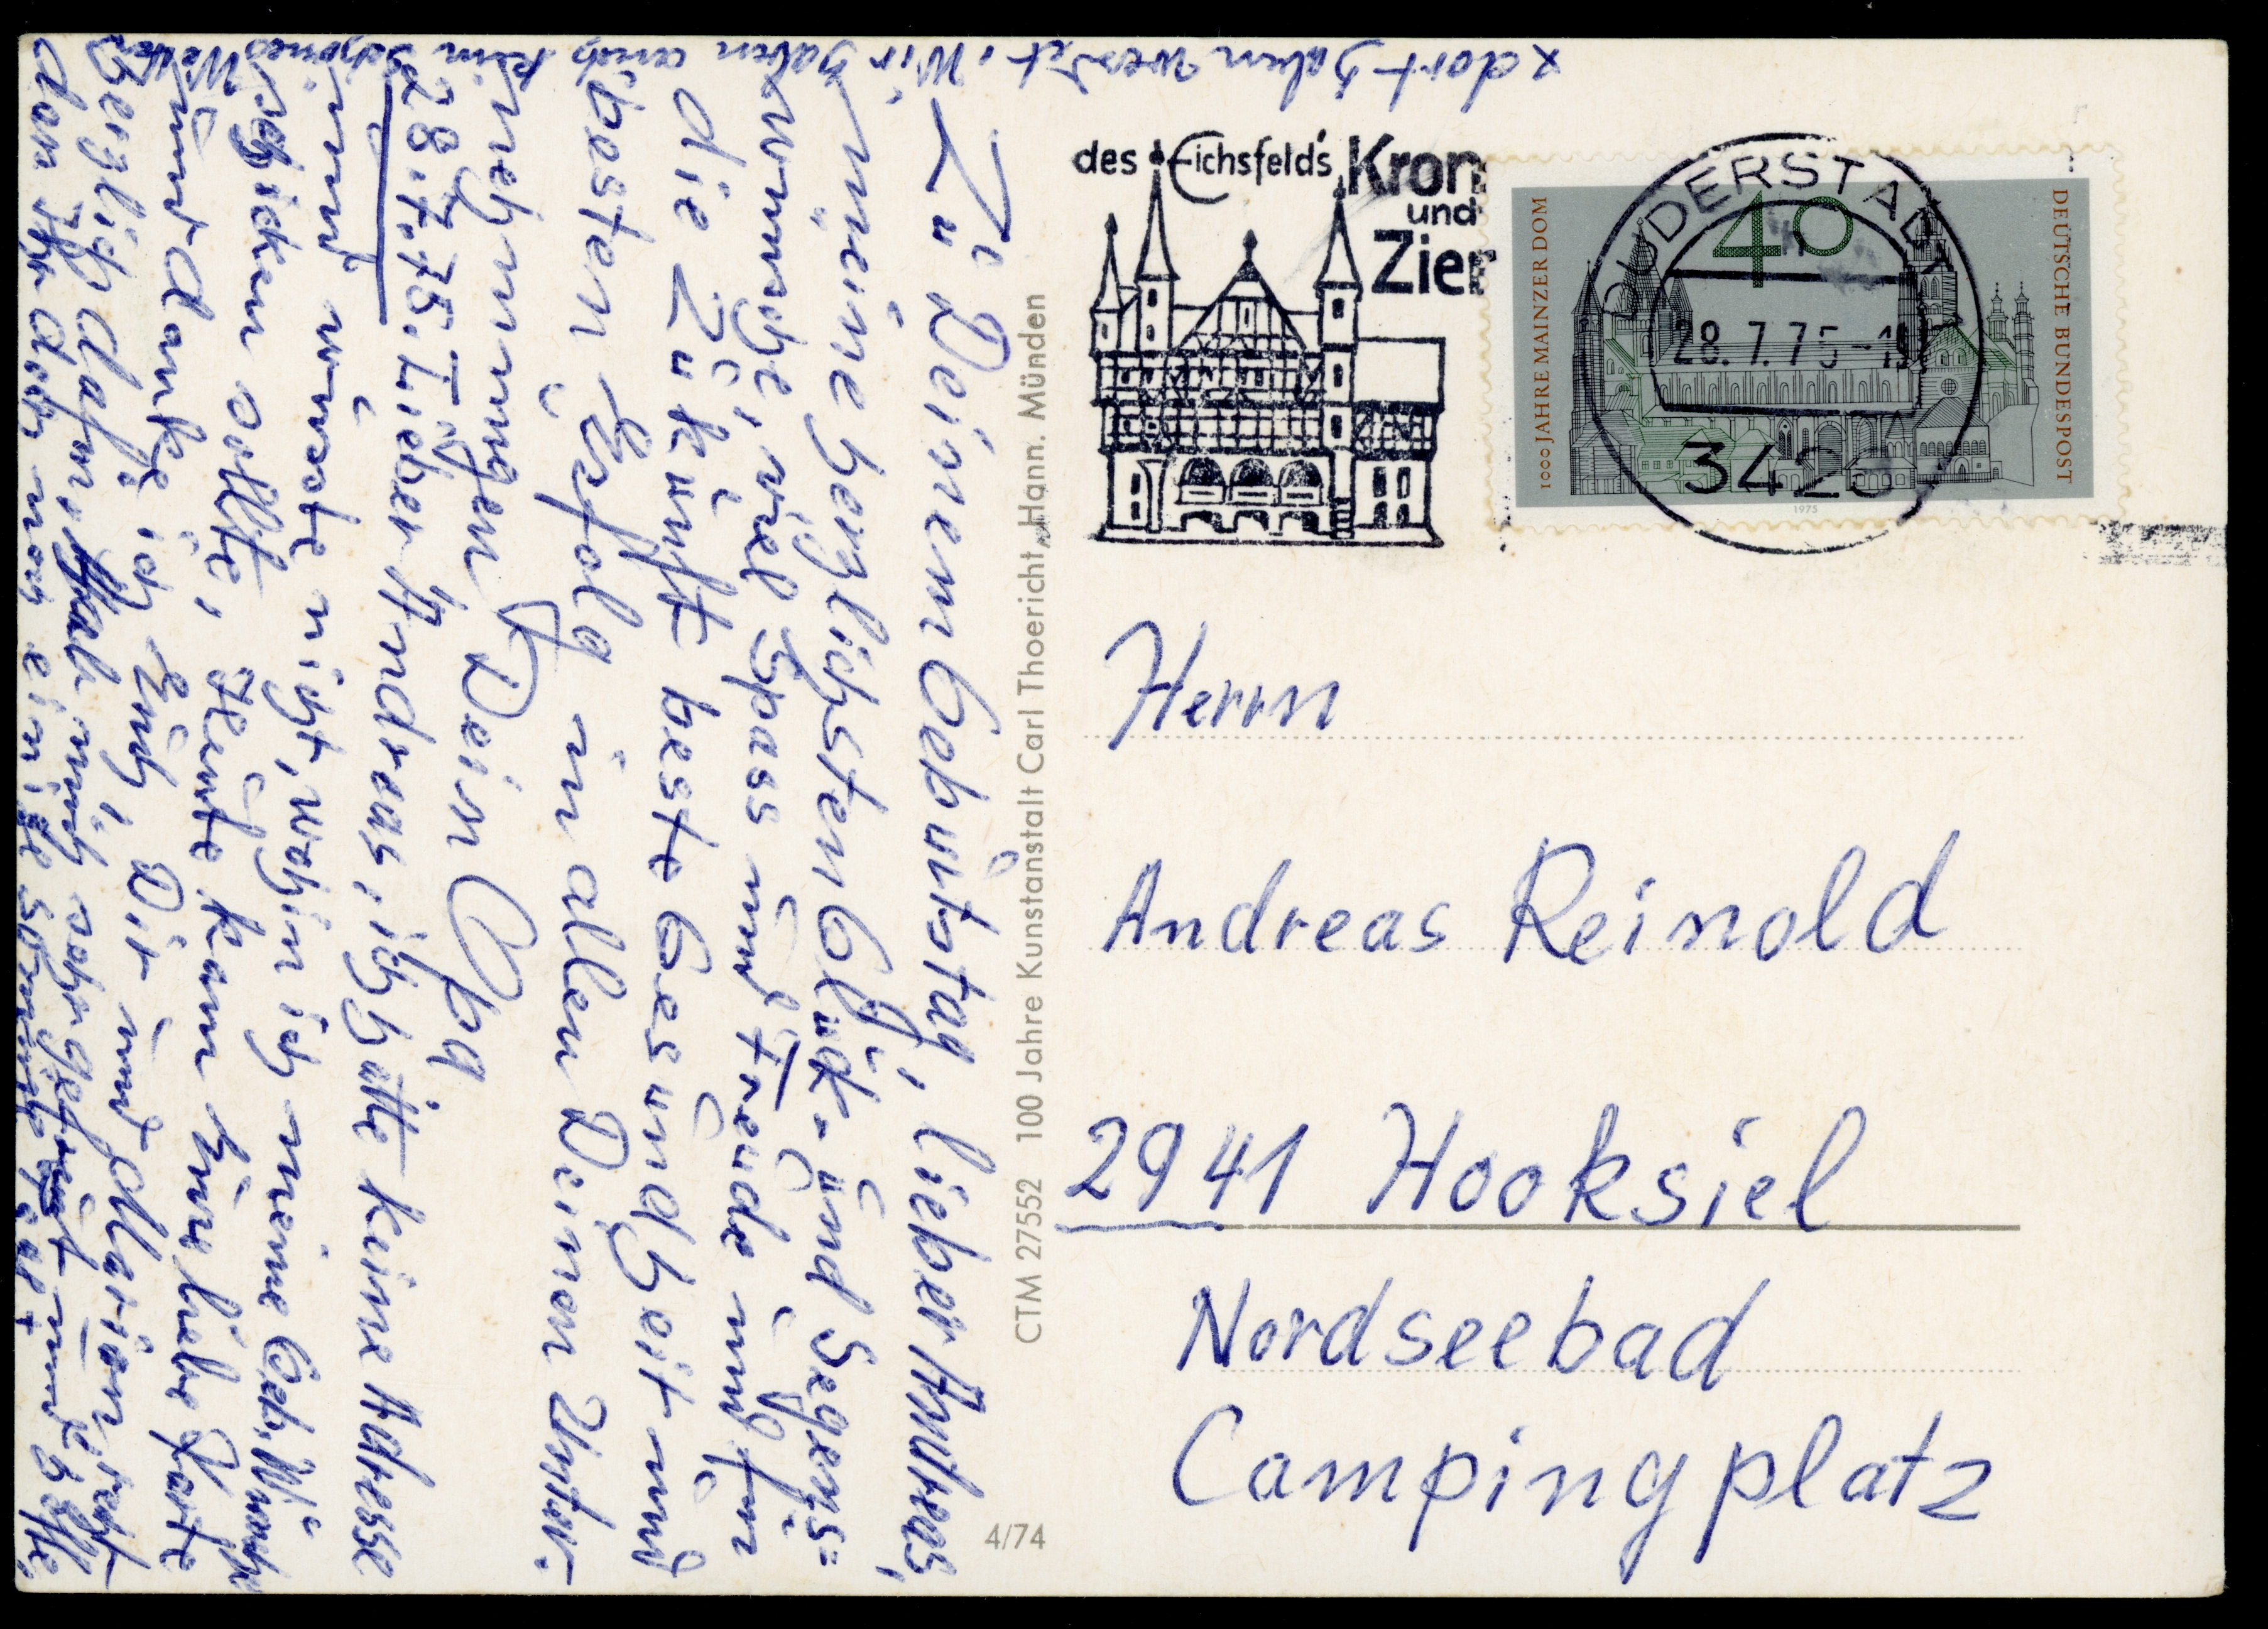 Zu Deinem Geburtstag, lieber Andreas,
meine herzlichsten Glück- und Segens=
wünsche, viel Spass und Freude und für
die Zukunft beste Gesundheit und
besten Erfolg in allen Deinen Unter-
nehmungen Dein Opa
28.7.75. Lieber Andreas, ich hatte keine Adresse
und wusste nicht, wohin ich meine Geb. Wünsche
schicken sollte, Heute kam Eure liebe Karte
und danke ich Euch, Dir und Marion recht
herzlich dafür. Hab mich sehr gefreut und hoffe,
dass Ihr doch noch einige
x dort haben werdet. Wir haben auch kein schönes Wetter
des Eichsfeld's Kron
und
Zier
DUDERSTADT 1
28.7.75-1
342
1000 JAHRE MAINZER DOM
40
DEUTSCHE BUNDESPOST
1975
Herrn
Andreas Reinold
2941 Hooksiel
Nordseebad
Campingplatz
CTM 27552 100 Jahre Kunstanstalt Carl Thoericht, Hann. Münden
4/74